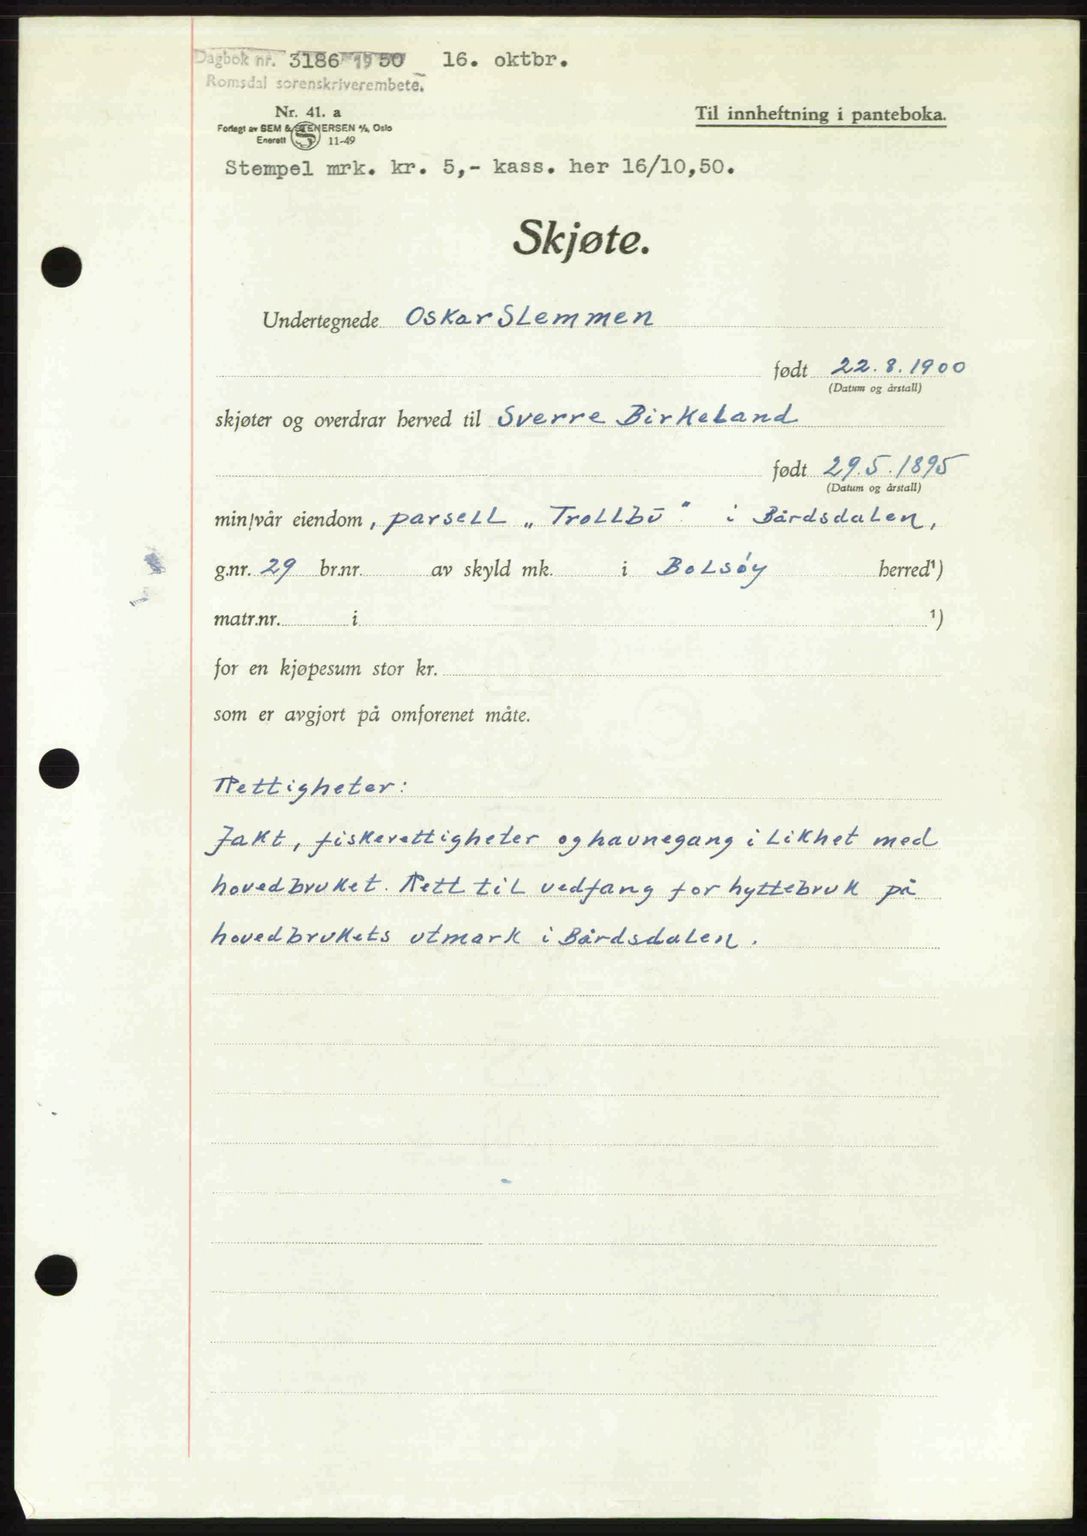 Dagbok nr. 3186 1950 16. oktbr.
Romsdal sorenskriverembete.
Nr. 41. a
Forlagt av SEM & STENERSEN A/S, Oslo
Enerett 11-49
Til innheftning i panteboka.
Stempel mrk. kr. 5,- kass. her 16/10,50.
Skjøte.
Undertegnede Oskar Slemmen
født 22.8.1900
(Datum og årstall)
skjøter og overdrar herved til Sverre Birkeland
født 29.5.1895
(Datum og årstall)
min/vår eiendom, parsell „Trollbu" i Bårdsdalen,
g.nr. 29 br.nr. av skyld mk. i Bolsøy herred¹)
matr.nr. i ¹)
for en kjøpesum stor kr.
som er avgjort på omforenet måte.
Rettigheter:
Jakt, fiskerettigheter og havnegang i likhet med
hovedbruket. Rett til vedfang for hyttebruk på
hovedbrukets utmark i Bårdsdalen.